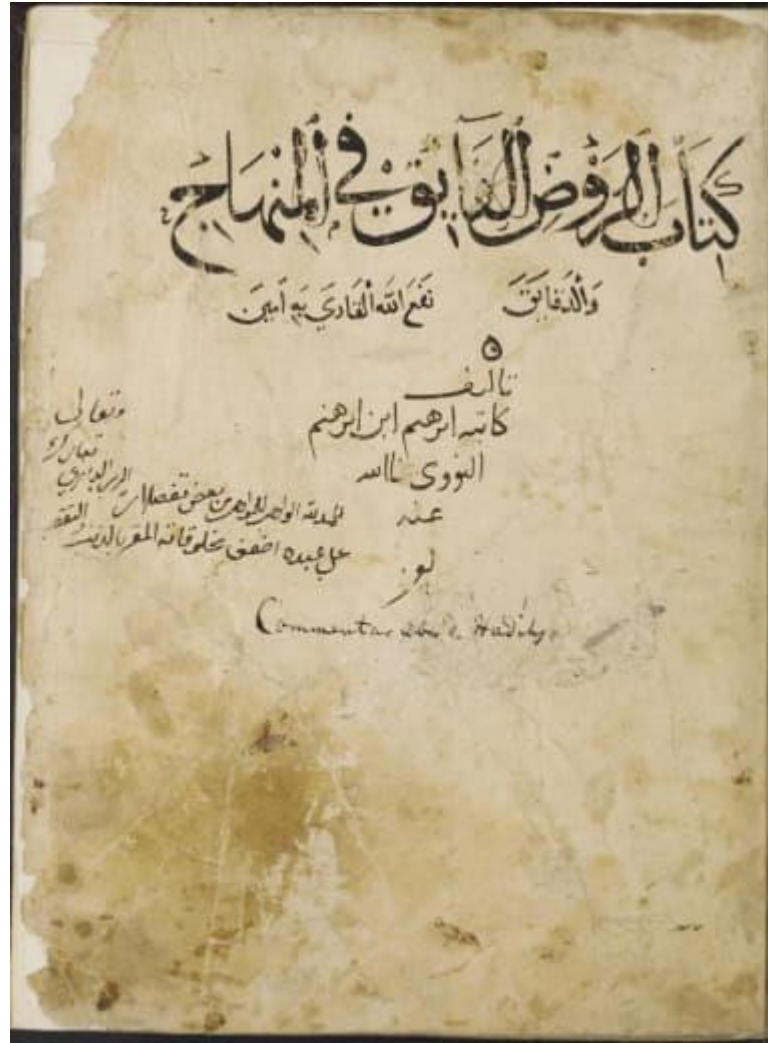 كتاب الروض الفايق في المنهاج
والدقايق نفع الله القاري به امين
تاليف
كاتبه ابرهيم ابن ابرهيم
النووي
عنه
وتعالى
الحمد لله الواحد من بعض تفضلات
على عبده اضعف مخلوقاته المقر بالذنب
Commentar Hadith